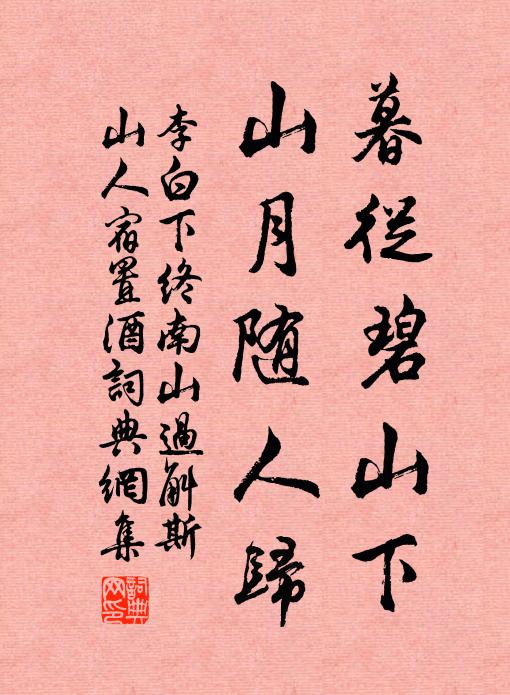 暮從碧山下
山月随人歸
李白下終南山過斛斯
山人宿置酒詞典網集
詞典
网印